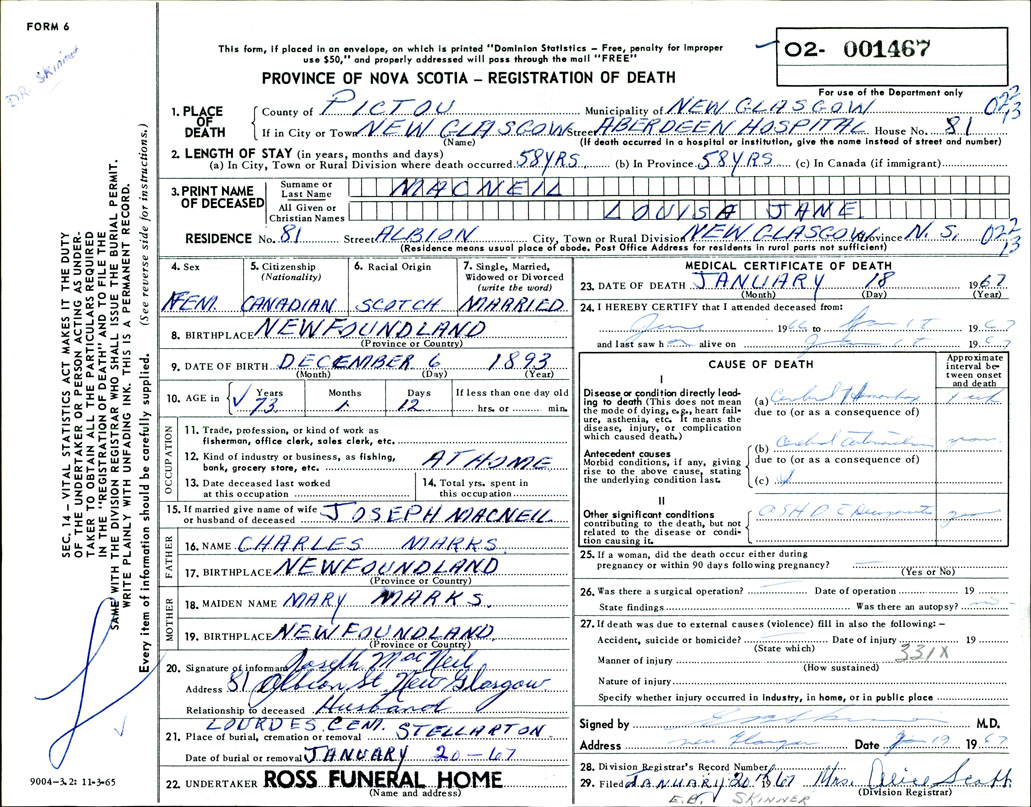 FORM 6
DR. SKinner
This form, if placed in an envelope, on which is printed "Dominion Statistics – Free, penalty for improper
use $50," and properly addressed will pass through the mail "FREE"
PROVINCE OF NOVA SCOTIA – REGISTRATION OF DEATH
02- 001467
For use of the Department only
SEC. 14 – VITAL STATISTICS ACT MAKES IT THE DUTY
OF THE UNDERTAKER OR PERSON ACTING AS UNDER-
TAKER TO OBTAIN ALL THE PARTICULARS REQUIRED
IN THE "REGISTRATION OF DEATH" AND TO FILE THE
SAME WITH THE DIVISION REGISTRAR WHO SHALL ISSUE THE BURIAL PERMIT.
WRITE PLAINLY WITH UNFADING INK. THIS IS A PERMANENT RECORD.
Every item of information should be carefully supplied. (See reverse side for instructions.)
1. PLACE OF DEATH
County of PICTOU Municipality of NEW GLASGOW 022 13
If in City or Town NEW GLASGOW Street ABERDEEN HOSPITAL House No. 81
(Name) (If death occurred in a hospital or institution, give the name instead of street and number)
2. LENGTH OF STAY (in years, months and days)
(a) In City, Town or Rural Division where death occurred 58 YRS (b) In Province 58 YRS (c) In Canada (if immigrant)
3. PRINT NAME OF DECEASED
Surname or Last Name MACNEIL
All Given or Christian Names LOUISA JANE
RESIDENCE No. 81 Street ALBION City, Town or Rural Division NEW GLASGOW Province N. S. 022 13
(Residence means usual place of abode. Post Office Address for residents in rural parts not sufficient)
4. Sex 5. Citizenship (Nationality) 6. Racial Origin 7. Single, Married, Widowed or Divorced (write the word)
FEM. CANADIAN SCOTCH MARRIED
8. BIRTHPLACE NEWFOUNDLAND
(Province or Country)
9. DATE OF BIRTH DECEMBER 6 1893
(Month) (Day) (Year)
10. AGE in Years Months Days If less than one day old
73 1 12 hrs. or min.
OCCUPATION
11. Trade, profession, or kind of work as
fisherman, office clerk, sales clerk, etc.
12. Kind of industry or business, as fishing,
bank, grocery store, etc. AT HOME
13. Date deceased last worked
at this occupation
14. Total yrs. spent in
this occupation
15. If married give name of wife
or husband of deceased JOSEPH MACNEIL
FATHER
16. NAME CHARLES MARKS
17. BIRTHPLACE NEWFOUNDLAND
(Province or Country)
MOTHER
18. MAIDEN NAME MARY MARKS.
19. BIRTHPLACE NEWFOUNDLAND
(Province or Country)
20. Signature of informant Joseph MacNeil
Address 81 Albion St New Glasgow
Relationship to deceased Husband
LOURDES CEM. STELLARTON
21. Place of burial, cremation or removal
Date of burial or removal JANUARY 20-67
22. UNDERTAKER ROSS FUNERAL HOME
(Name and address)
9004-3.2: 11-3-65
MEDICAL CERTIFICATE OF DEATH
23. DATE OF DEATH JANUARY 18 1967
(Month) (Day) (Year)
24. I HEREBY CERTIFY that I attended deceased from:
June 1966 to 1967
and last saw h alive on 1967
CAUSE OF DEATH
Approximate interval between onset and death
I
Disease or condition directly lead-
ing to death (This does not mean
the mode of dying, e.g., heart fail-
ure, asthenia, etc. It means the
disease, injury, or complication
which caused death.)
(a) Cerebral Hemorrhage
due to (or as a consequence of)
Antecedent causes
Morbid conditions, if any, giving
rise to the above cause, stating
the underlying condition last.
(b) Cerebral
due to (or as a consequence of)
(c)
II
Other significant conditions
contributing to the death, but not
related to the disease or condi-
tion causing it.
ASHD
25. If a woman, did the death occur either during
pregnancy or within 90 days following pregnancy?
(Yes or No)
26. Was there a surgical operation? Date of operation 19
State findings Was there an autopsy?
27. If death was due to external causes (violence) fill in also the following: –
Accident, suicide or homicide? Date of injury 19
(State which) 331X
Manner of injury
(How sustained)
Nature of injury
Specify whether injury occurred in industry, in home, or in public place
Signed by M.D.
Address New Glasgow Date Jan 19 1967
28. Division Registrar's Record Number
29. Filed JANUARY 20th 1967 Mrs. Alice Scott
(Division Registrar)
E.B. SKINNER